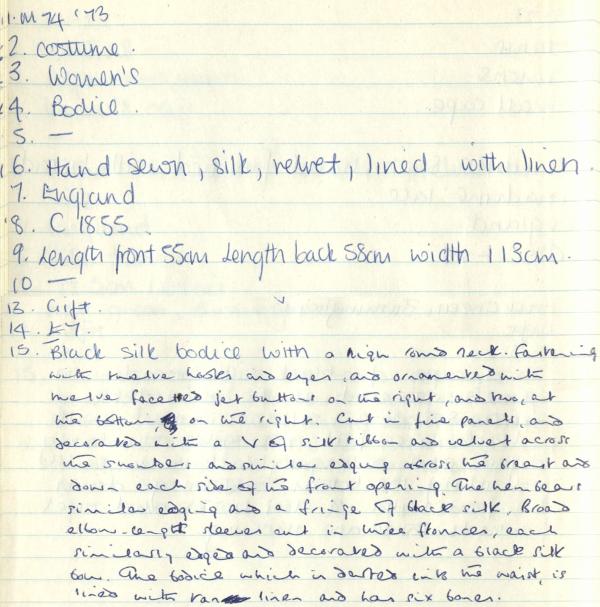 1. M 74 '73
2. costume.
3. Women's
4. Bodice.
5. —
6. Hand sewn, silk, velvet, lined with linen.
7. England
8. C 1855.
9. Length front 55cm Length back 58cm width 113cm.
10 —
13. Gift.
14. £7.
15. Black silk bodice with a high round neck. Fastening
with twelve hooks and eyes, and ornamented with
twelve facetted jet buttons on the right, and two, at
the bottom, on the right. Cut in five panels, and
decorated with a V of silk ribbon and velvet across
the shoulders and similar edging across the breast and
down each side of the front opening. The hem bears
similar edging and a fringe of black silk. Broad
elbow-length sleeves cut in three flounces, each
similarly edged and decorated with a black silk
bow. The bodice which is darted into the waist, is
lined with linen and has six bones.